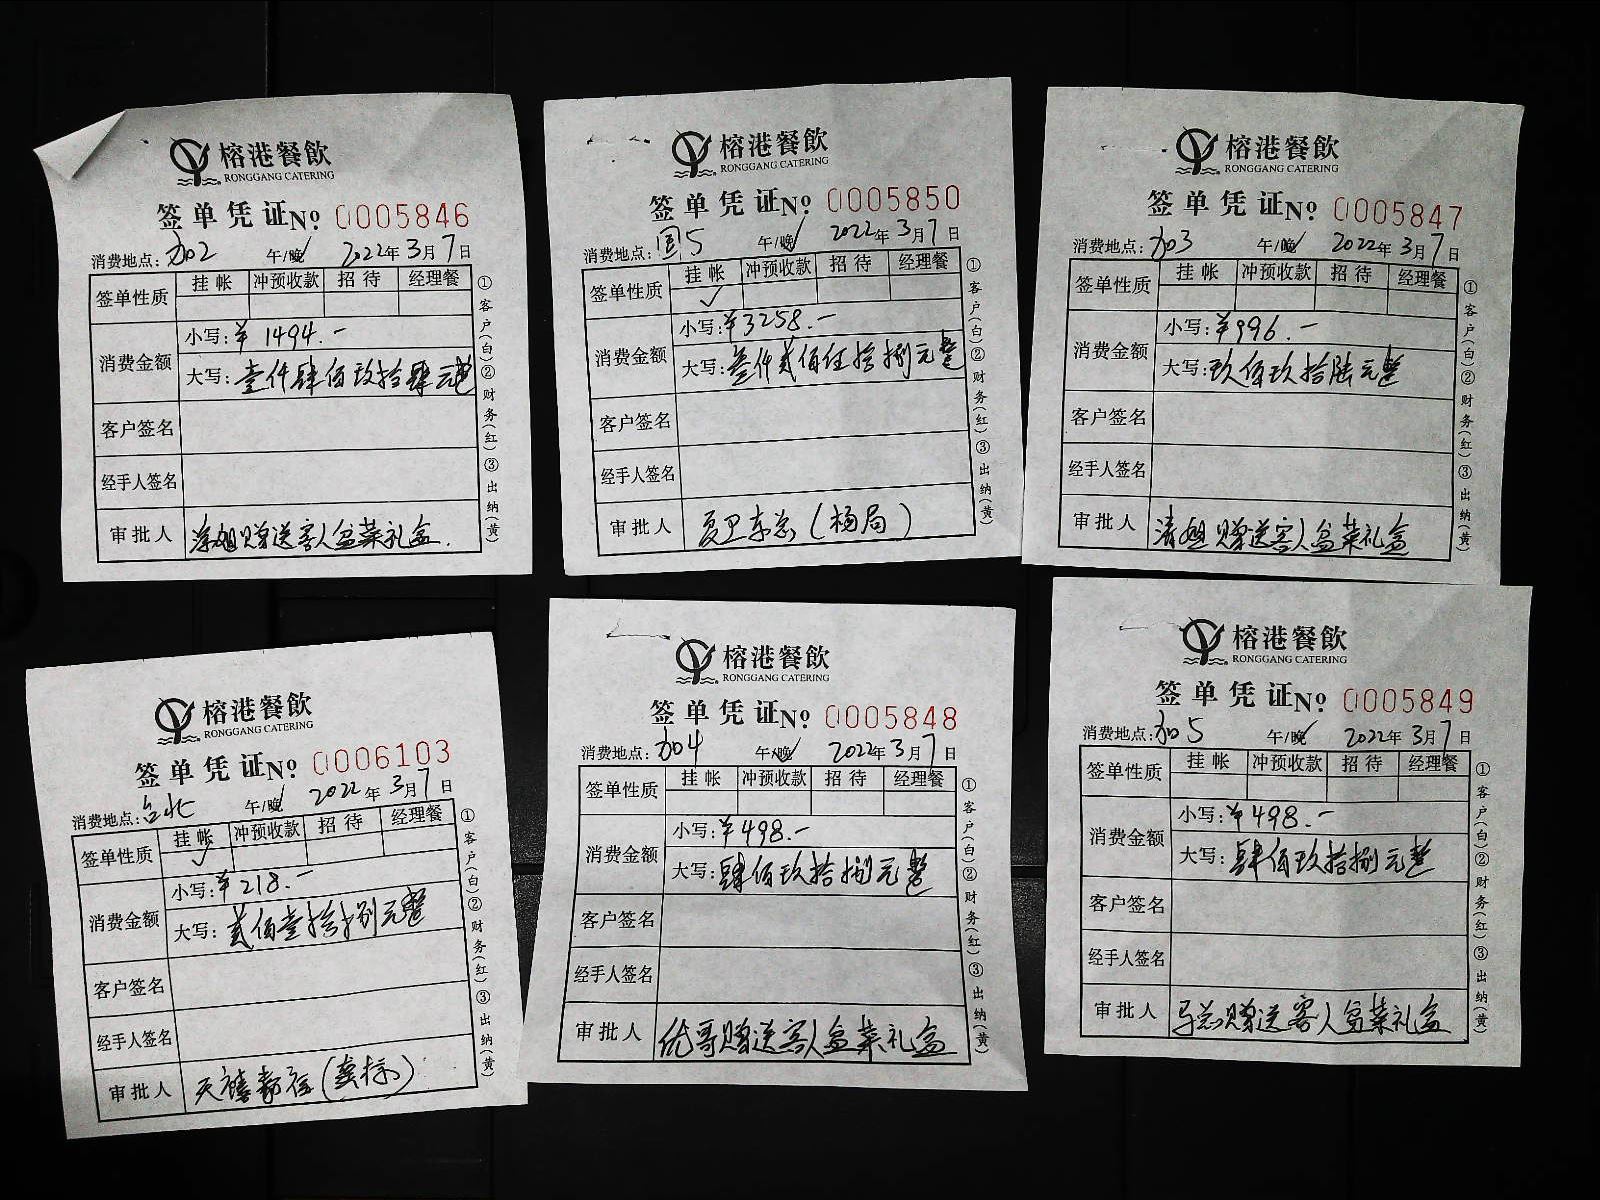 榕港餐飲
RONGGANG CATERING
签单凭证 No 0005846
消费地点：加2 午/晚 2022年3月7日
签单性质 挂帐 冲预收款 招待 经理餐
消费金额 小写：¥1494.-
大写：壹仟肆佰玖拾肆元整
客户签名
经手人签名
审批人 赠送客人盆菜礼盒.
①客户(白)②财务(红)③出纳(黄)
榕港餐飲
RONGGANG CATERING
签单凭证 No 0005850
消费地点：国5 午/晚 2022年3月7日
签单性质 挂帐 冲预收款 招待 经理餐
✓
消费金额 小写：¥3258.-
大写：叁仟贰佰伍拾捌元整
客户签名
经手人签名
审批人 夏巴李总(杨局)
①客户(白)②财务(红)③出纳(黄)
榕港餐飲
RONGGANG CATERING
签单凭证 No 0005847
消费地点：加3 午/晚 2022年3月7日
签单性质 挂帐 冲预收款 招待 经理餐
消费金额 小写：¥996.-
大写：玖佰玖拾陆元整
客户签名
经手人签名
审批人 清姐赠送客人盆菜礼盒
①客户(白)②财务(红)③出纳(黄)
榕港餐飲
RONGGANG CATERING
签单凭证 No 0006103
消费地点：台北 午/晚 2022年3月7日
签单性质 挂帐 冲预收款 招待 经理餐
✓
消费金额 小写：¥218.-
大写：贰佰壹拾捌元整
客户签名
经手人签名
审批人 天禧
①客户(白)②财务(红)③出纳(黄)
榕港餐飲
RONGGANG CATERING
签单凭证 No 0005848
消费地点：加4 午/晚 2022年3月7日
签单性质 挂帐 冲预收款 招待 经理餐
消费金额 小写：¥498.-
大写：肆佰玖拾捌元整
客户签名
经手人签名
审批人 优哥赠送客人盆菜礼盒
①客户(白)②财务(红)③出纳(黄)
榕港餐飲
RONGGANG CATERING
签单凭证 No 0005849
消费地点：加5 午/晚 2022年3月7日
签单性质 挂帐 冲预收款 招待 经理餐
消费金额 小写：¥498.-
大写：肆佰玖拾捌元整
客户签名
经手人签名
审批人 马总赠送客人盆菜礼盒
①客户(白)②财务(红)③出纳(黄)